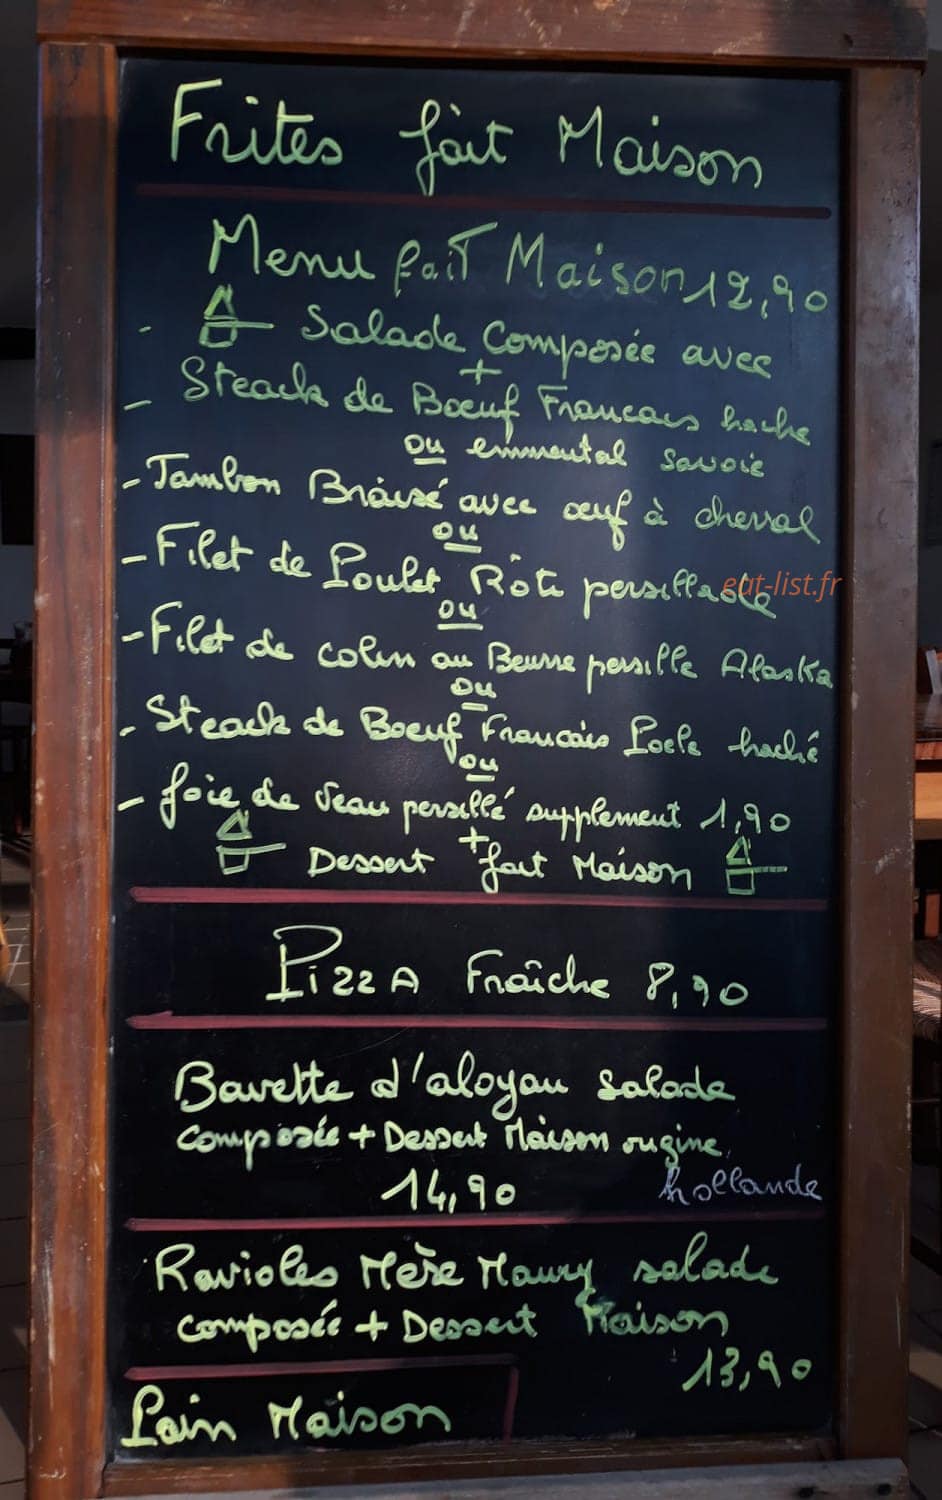 Frites fait Maison
Menu fait Maison 12,90
- Salade Composée avec
+
- Steack de Boeuf Francais hache
ou emmental Savoie
- Jambon Braisé avec œuf à cheval
ou
- Filet de Poulet Rôti persillade
eat-list.fr
ou
- Filet de colin au Beurre persille Alaska
ou
- Steack de Boeuf Francais Poele haché
ou
- foie de Veau persillé supplement 1,90
+
Dessert fait Maison
PizzA Fraîche 8,90
Bavette d'aloyau salade
composée + Dessert Maison origine
14,90 hollande
Ravioles Mère Maury salade
composée + Dessert Maison
13,90
Pain Maison